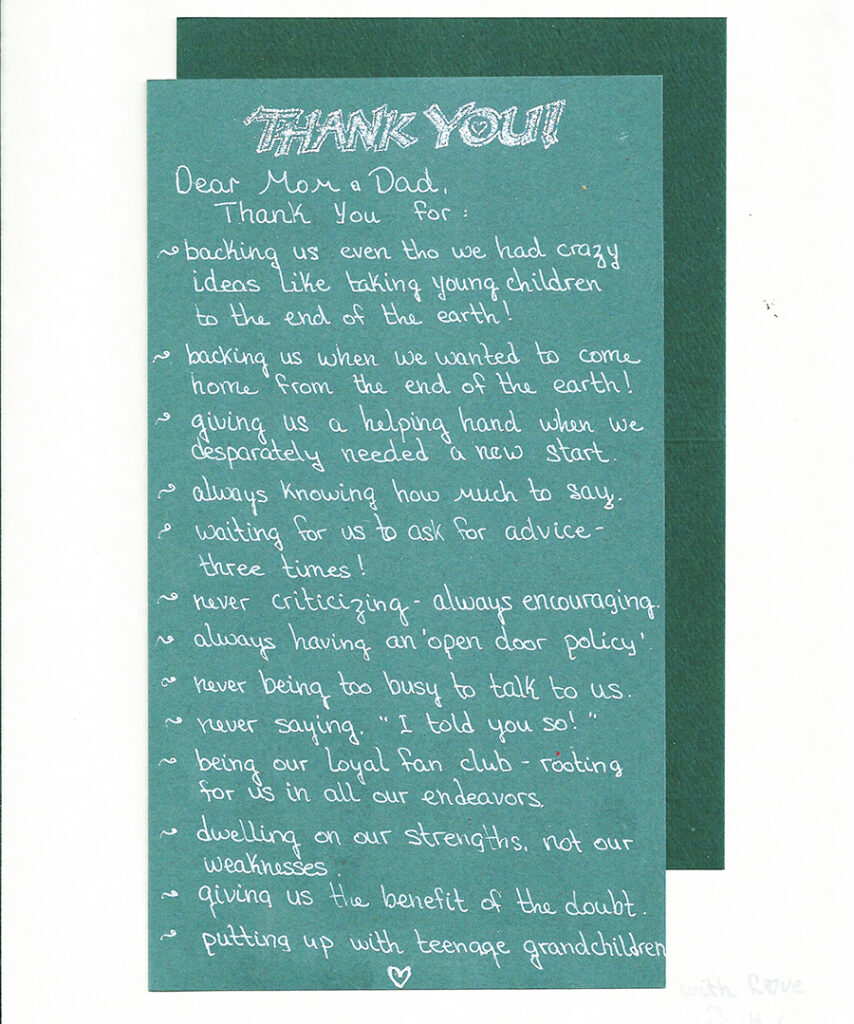 THANK YOU!
Dear Mom & Dad,
Thank You for:
~ backing us even tho we had crazy
ideas like taking young children
to the end of the earth!
~ backing us when we wanted to come
home from the end of the earth!
~ giving us a helping hand when we
desparately needed a new start.
~ always knowing how much to say.
~ waiting for us to ask for advice -
three times!
~ never criticizing - always encouraging.
~ always having an 'open door policy'.
~ never being too busy to talk to us.
~ never saying, "I told you so!"
~ being our loyal fan club - rooting
for us in all our endeavors.
~ dwelling on our strengths, not our
weaknesses.
~ giving us the benefit of the doubt.
~ putting up with teenage grandchildren
with Love